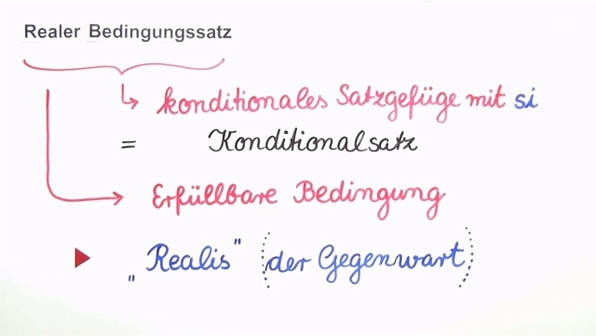 Realer Bedingungssatz
konditionales Satzgefüge mit si
= Konditionalsatz
Erfüllbare Bedingung
„Realis" (der Gegenwart)